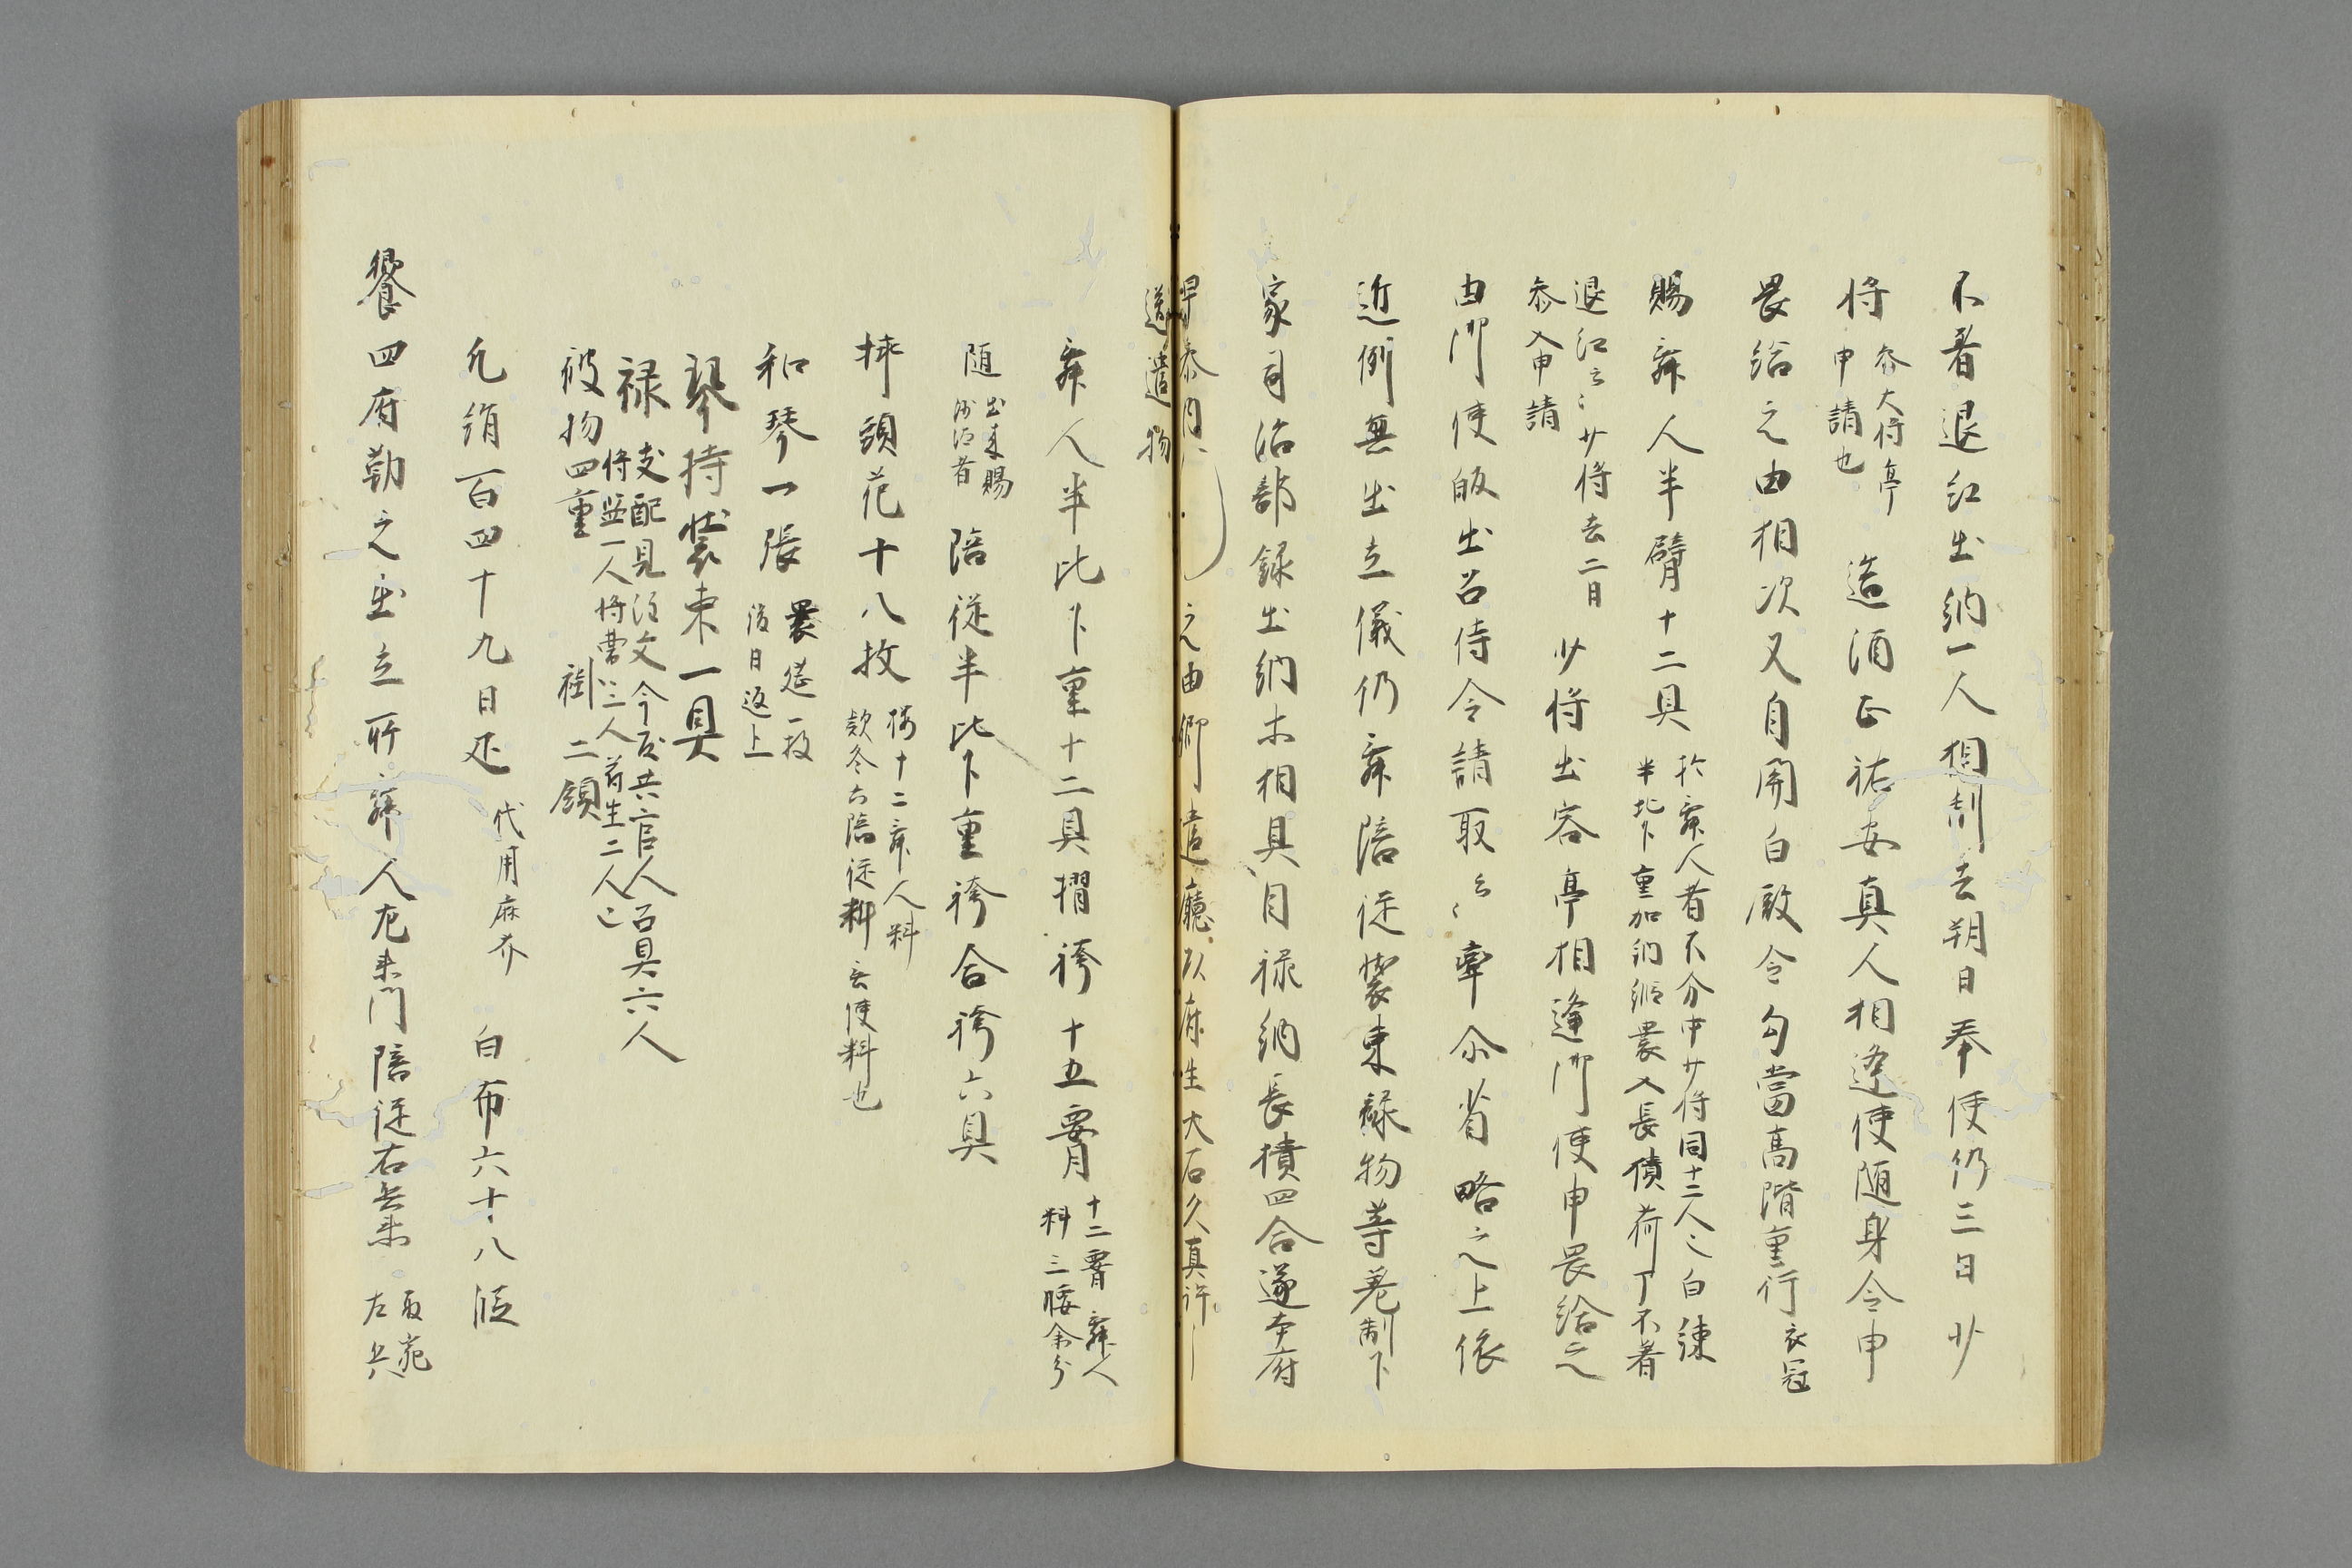 不着退紅出納一人相制去朔日奉使仍三日少
将参大将亭申請也造酒正祐安真人相逢使随身令申
畏給之由相次又自関白殿令勾當高階重行衣冠
賜舞人半臂十二具於舞人者不分中少将同十二人々白練半比下重加納線裹入長櫃荷丁不着
退紅云々少将去二日参入申請少将出客亭相逢門使申畏給之
由門使皈出召侍令請取云々牽分省略之上依
近例無出立儀仍舞陪従装束禄物等差制下
家司沿部録出納木相具目禄納長横四合送本府
参内之由仰遣廳以府生大石久真許
送遣物
舞人半比下重十二具摺袴十五腰十二腰舞人料三腰余分
随出来賜陪従半比下重袴合袴六具
挿頭花十八枚桜十二舞人料款冬六陪従料云使料也
和琴一張裹莚一枚後日返上
琴持装束一具
禄支配見注文今度共官人召具六人将監一人将曹三人府生二人々
被物四重褂二領
凡絹百四十九日疋代用麻布白布六十八段
饗四府勤之出立所舞人左来門陪従右兵
左兵